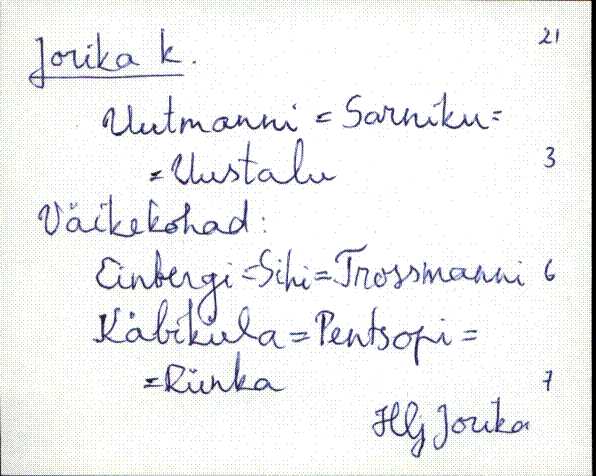 21
Jorika k.
Uutmanni = Sarniku =
= Uustalu 3
Väikekohad:
Einbergi = Sihi = Trossmanni 6
Käbiküla = Pentsopi =
= Riinka 7
Hlj Jorika